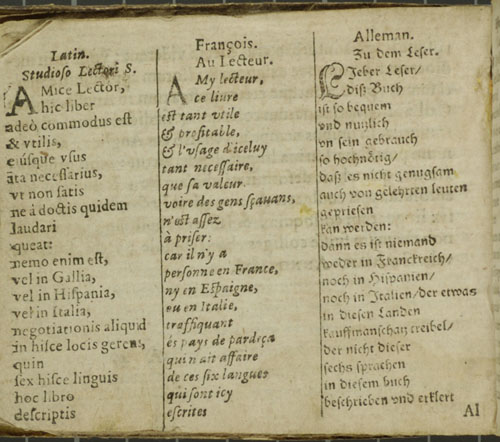 Latin.
Studioso Lectori S.
AMice Lector,
hic liber
adeò commodus est
& vtilis,
eiúsque vsus
āta necessarius,
vt non satis
ne à doctis quidem
laudari
queat:
nemo enim est,
vel in Gallia,
vel in Hispania,
vel in Italia,
negotiationis aliquid
in hisce locis gerens,
quin
sex hisce linguis
hoc libro
descriptis
François.
Au Lecteur.
AMy lecteur,
ce liure
est tant vtile
& profitable,
& l'vsage d'iceluy
tant necessaire,
que sa valeur
voire des gens sçauans,
n'est assez
à priser:
car il n'y a
personne en France,
ny en Espaigne,
ou en Italie,
traffiquant
és pays de pardeça
qui n'ait affaire
de ces six langues
qui sont icy
escrites
Alleman.
Zu dem Leser.
LIeber Leser/
diß Buch
ist so bequem
vnd nutzlich
vn sein gebrauch
so hochnötig/
daß es nicht genugsam
auch von gelehrten leuten
gepriesen
kan werden:
dann es ist niemand
weder in Franckreich/
noch in Hispanien/
noch in Italien/der etwas
in diesen Landen
kauffmanschatz treibel/
der nicht dieser
sechs sprachen
in diesem buch
beschrieben vnd erklert
Al